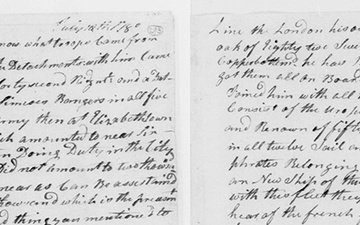 July 18th 1780
now what troops Came from
he Detachments with him Came
forty second Regnt and a Det
imcoes Rangers in all five
rmey then at Elizabethtown
ch amounted to near Six
n Doing Duty in the City
did not amount to two thous
neas as Can be assertaind
how and which is the presen
d thing you mentioned to
Line the London his o
oak of Eighty two
Copper bottomd he has
got them all on Boa
Joined him with all
Consist of the
and Renown of fift
in all twelve Sail o
phrates Belonging
an New Ship of th
with this fleet they
hear of the french